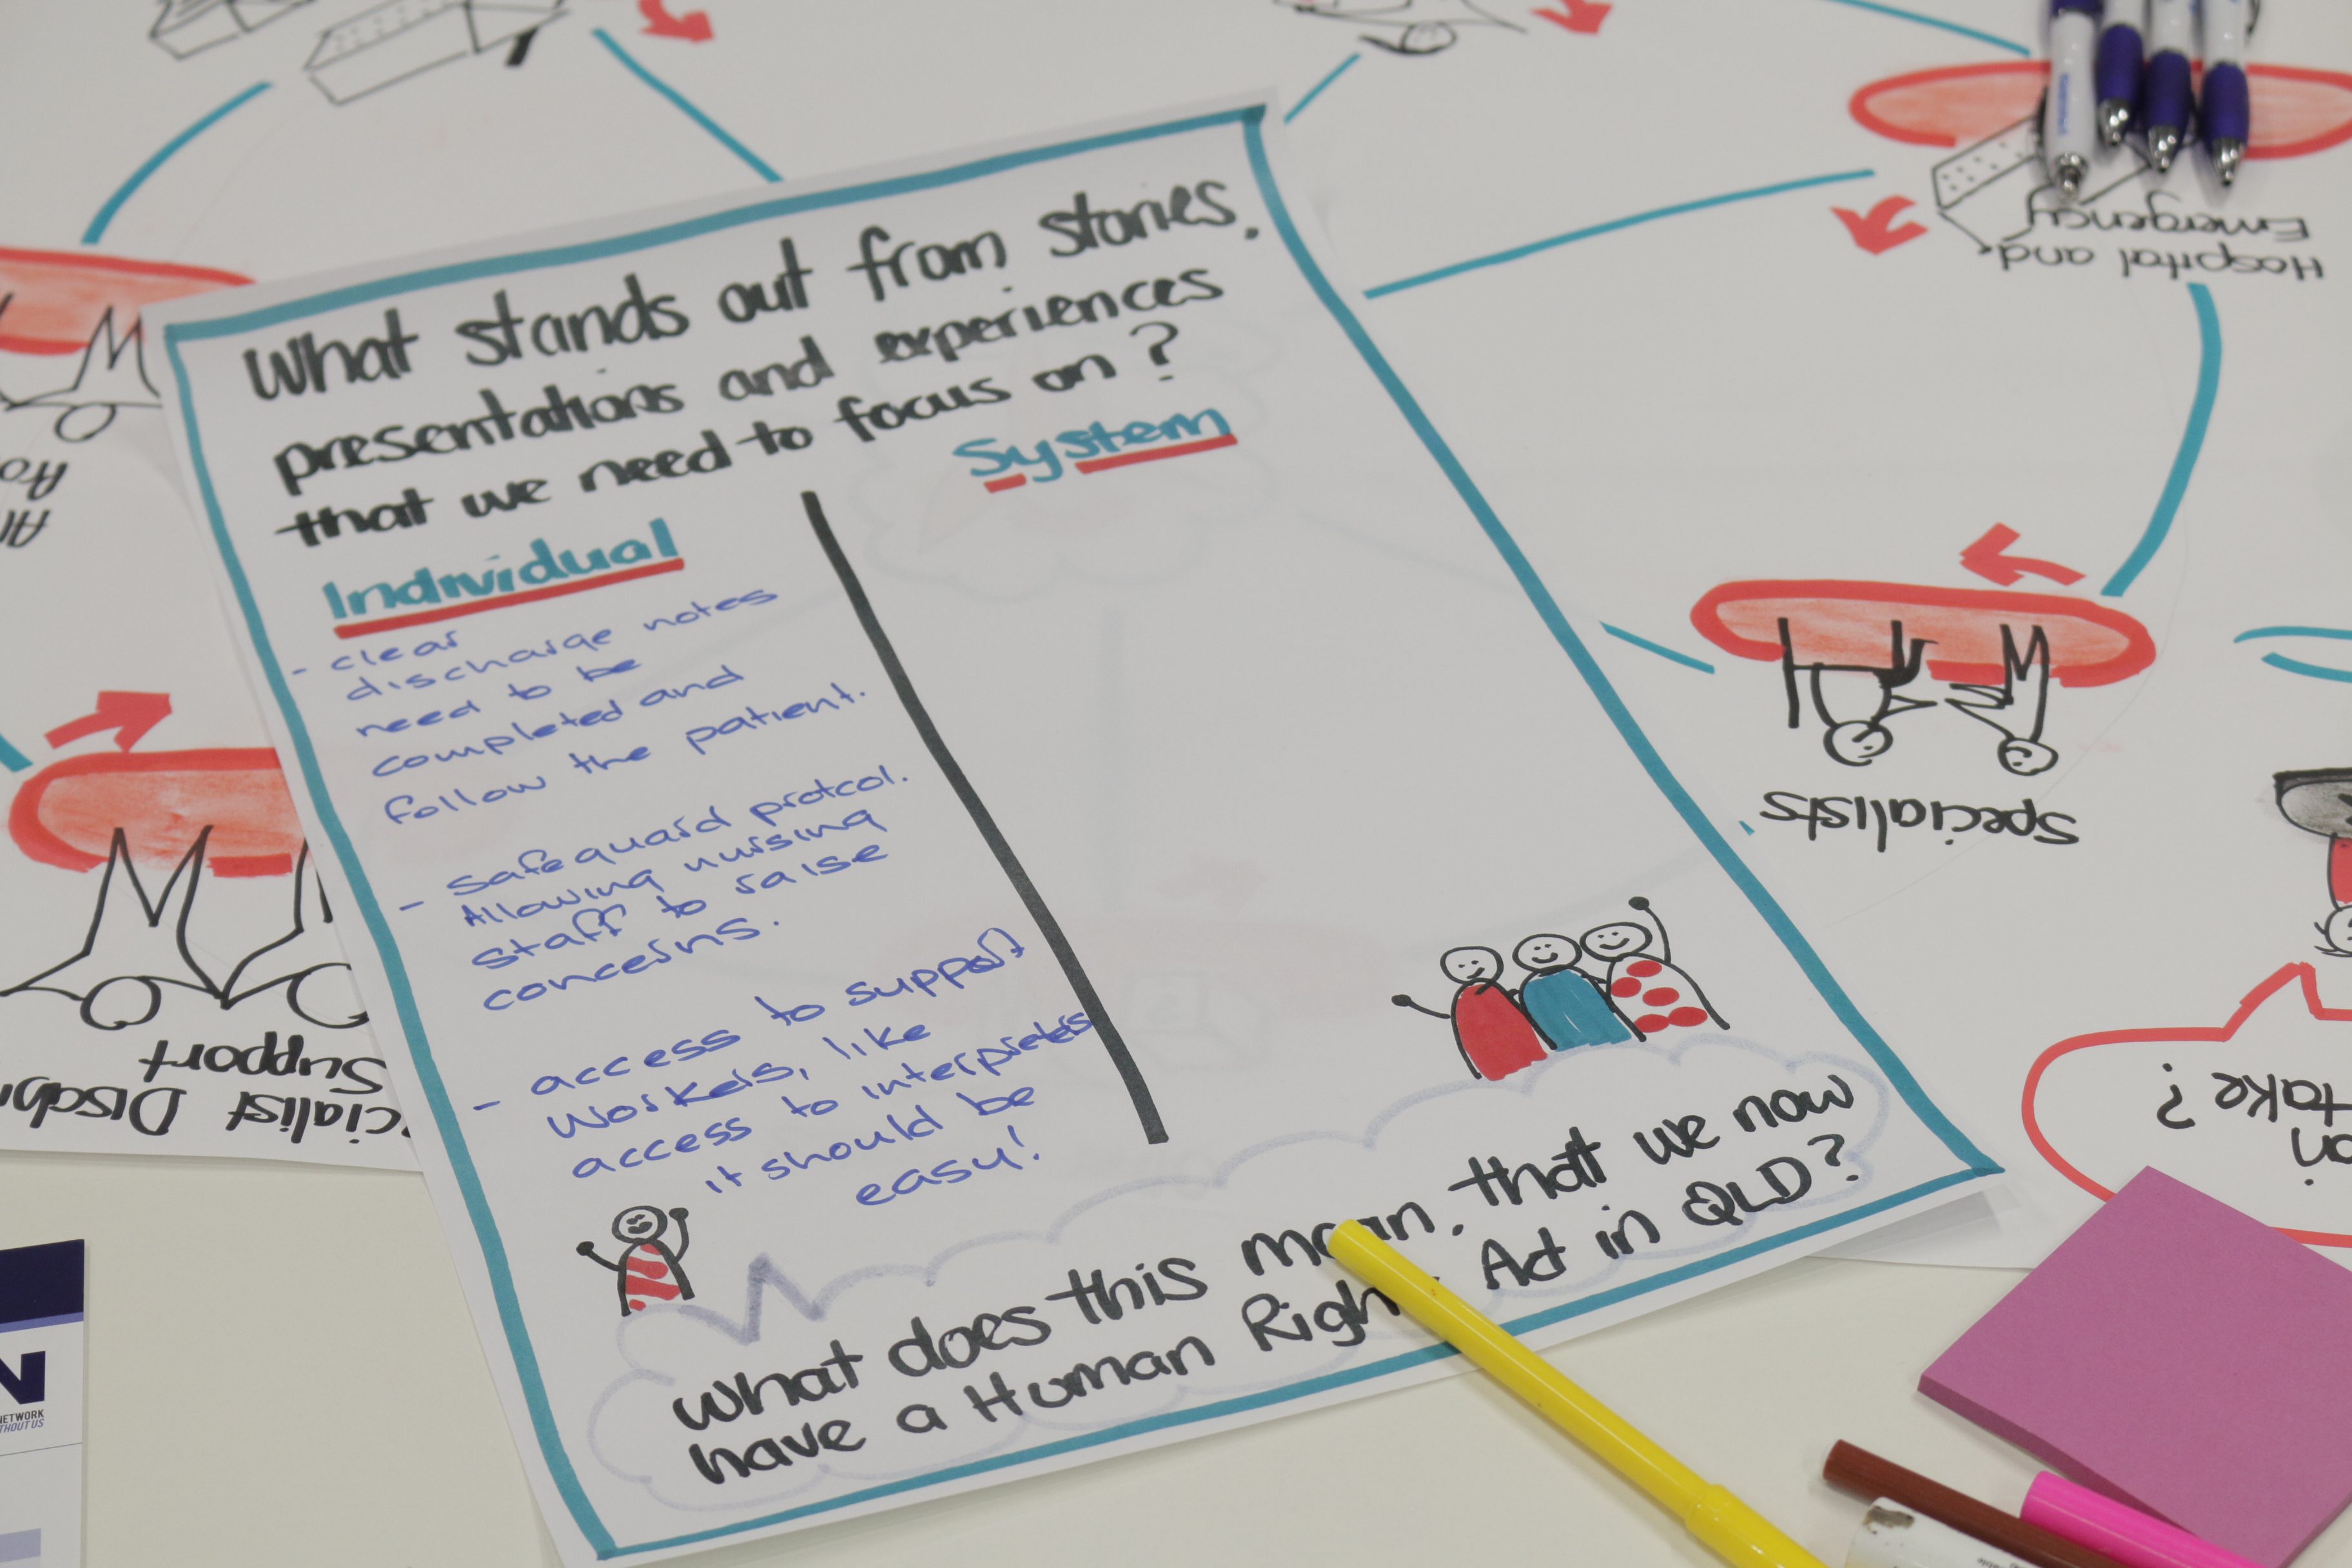 What stands out from stories.
presentations and experiences
that we need to focus on?
Individual
System
- clear
discharge notes
need to be
completed and
follow the patient.
- Safeguard protcol.
Allowing nursing
staff to raise
concerns.
- access to support
workers, like
access to interpreters
it should be
easy!
What does this mean. that we now
have a Human Act in QLD?
Hospital and
Emergency
Specialists
take?
Support
NETWORK